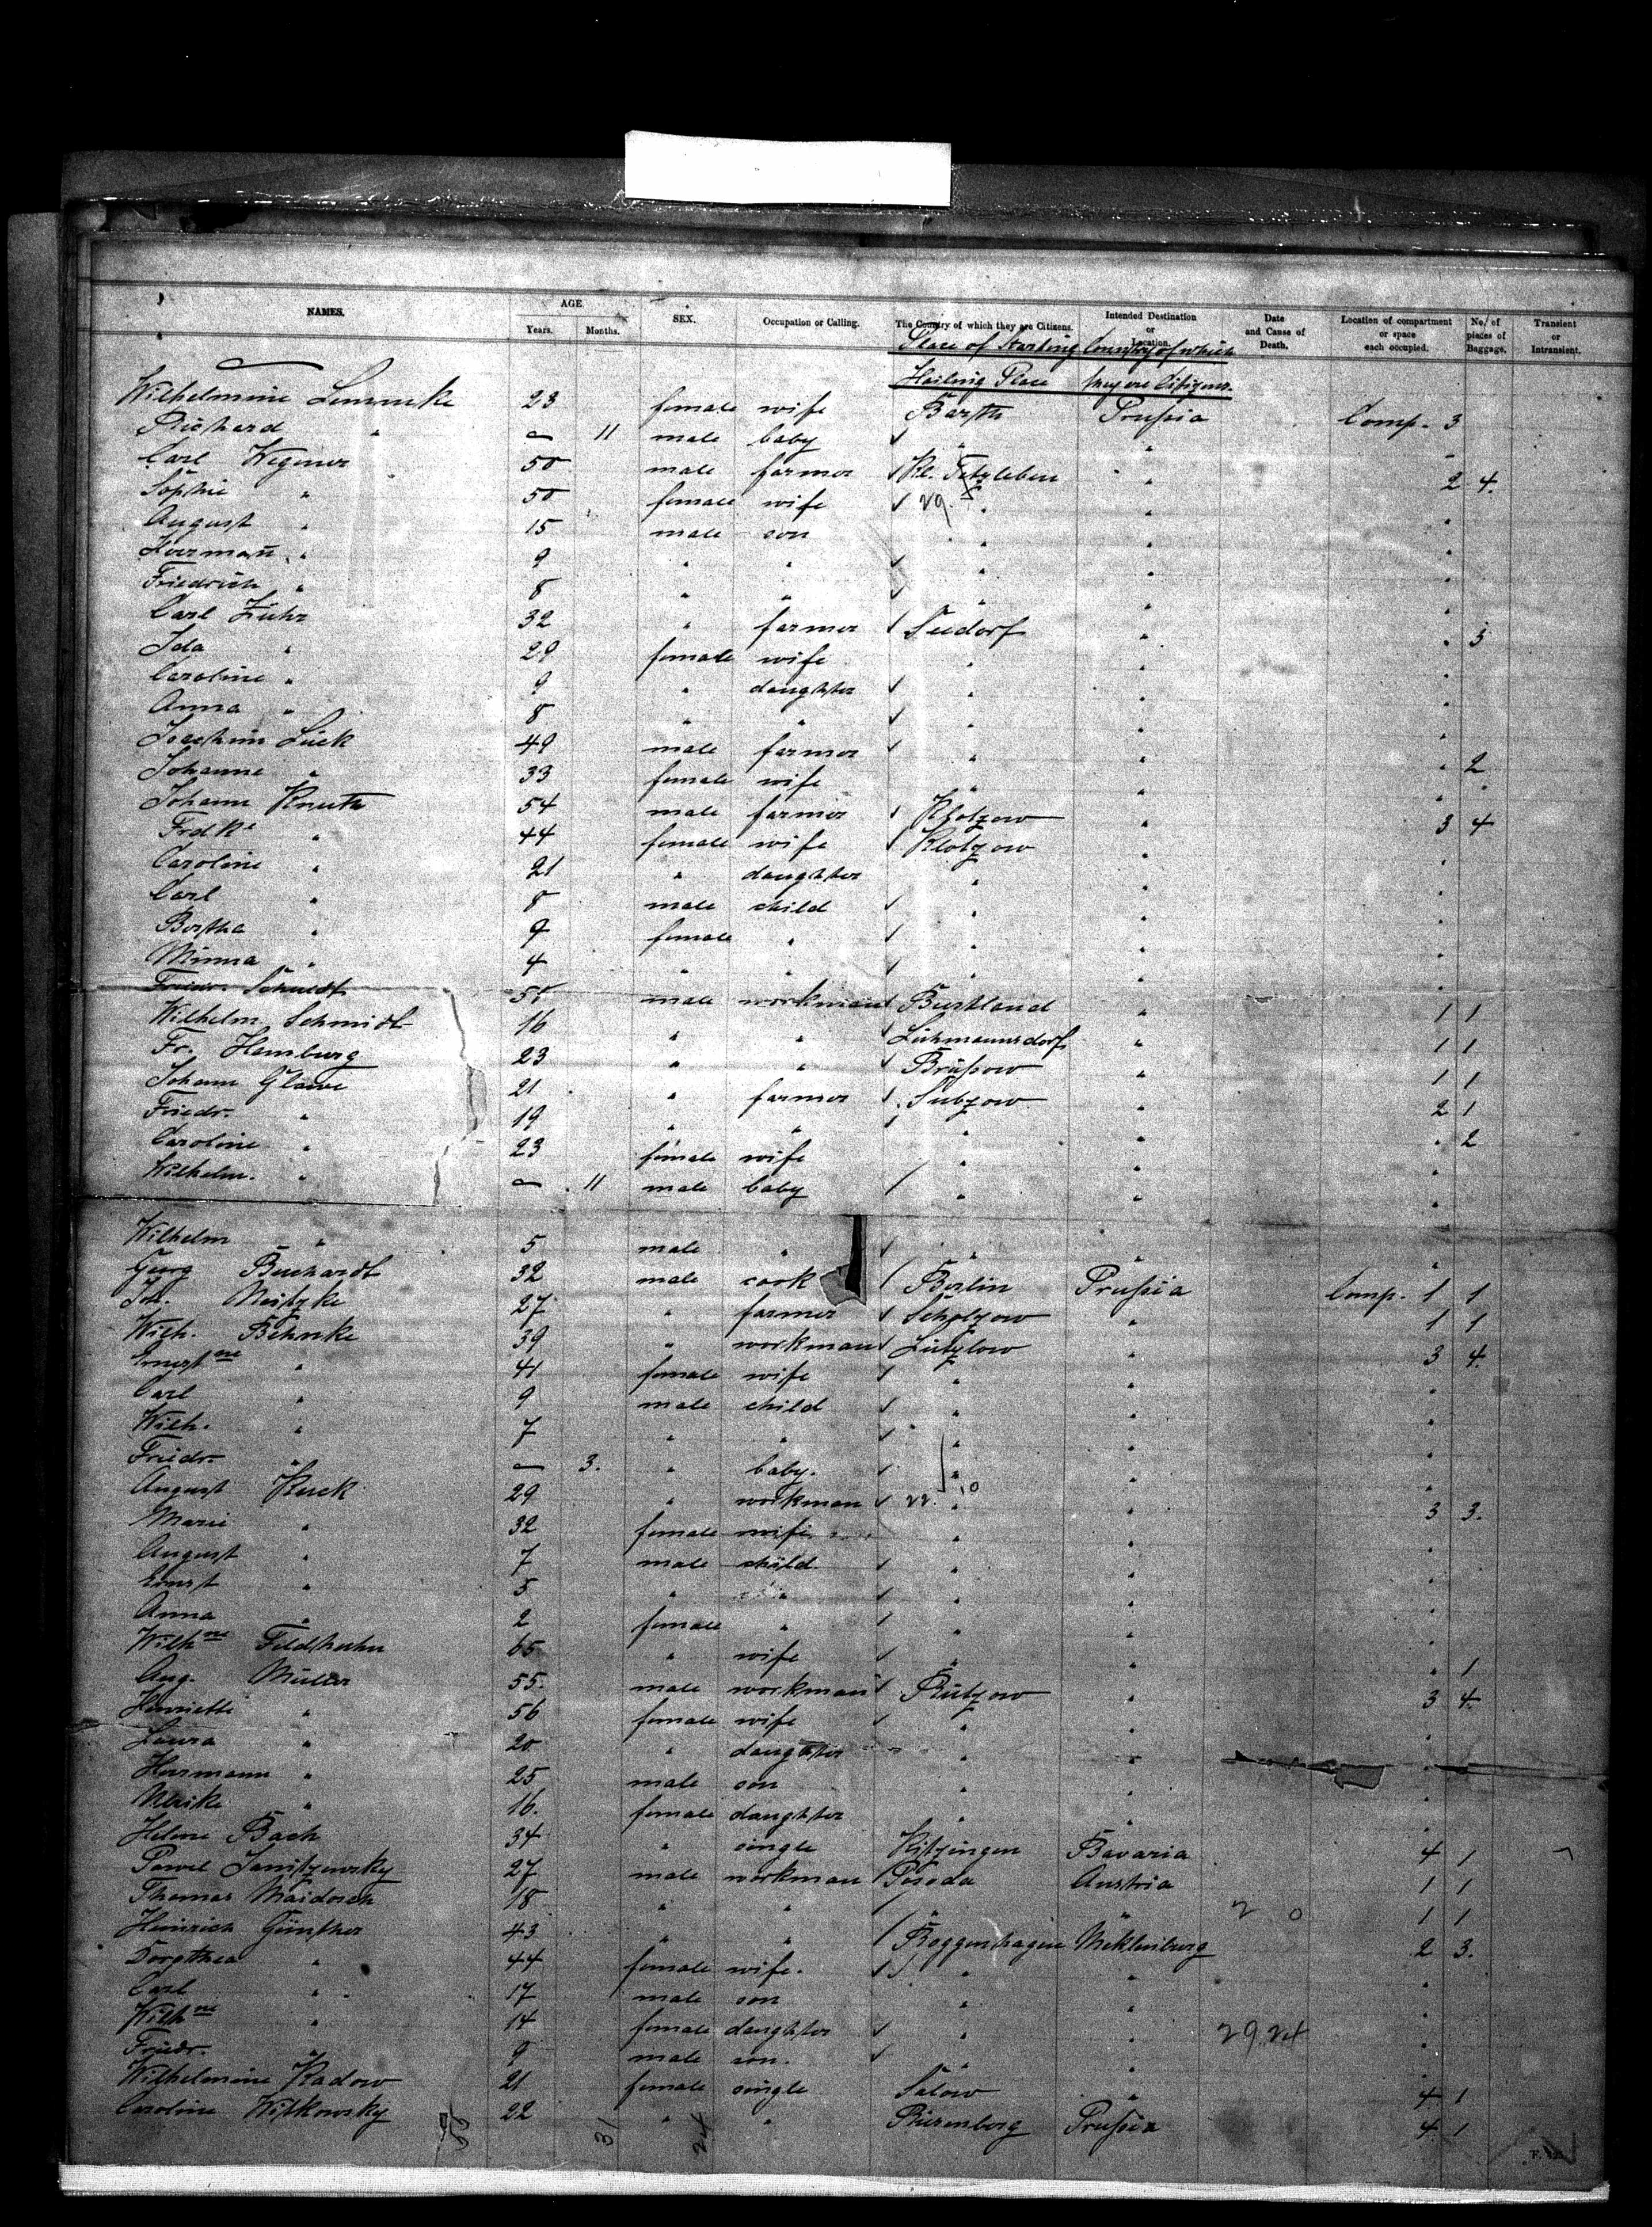 NAMES. AGE SEX. Occupation or Calling. The Country of which they are Citizens. Intended Destination or Location. Date and Cause of Death. Location of compartment or space each occupied. No. of pieces of Baggage. Transient or Intransient.
Years. Months.
Place of Starting Country of which
Hailing Place they are Citizens.
Wilhelmine Lemmcke 23 female wife Barth Prussia Comp. 3
Richard " — 11 male baby " "
Carl Wegner 50 male farmer Kl. Tetzleben " 2 4.
Sophie " 50 female wife 29 " "
August " 15 male son " "
Herrmañ " 9 " " " "
Friedrich " 8 " " " "
Carl Zühr 32 " farmer Seedorf " " 5
Ida " 29 female wife " "
Caroline " 9 " daughter " "
Anna " 8 " " " "
Joachim Lück 49 male farmer " " " 2
Johanne " 33 female wife " "
Johann Knuth 54 male farmer Klotzow " 3 4
Fredke " 44 female wife Klotzow "
Caroline " 21 " daughter " "
Carl " 8 male child " "
Bertha " 9 female " " "
Minna " 4 " " " "
Friedr. Schmidt 55 male workman " 1 1
Wilhelm Schmidt 16 " " Lühmannsdorf " 1 1
Fr. Hamburg 23 " " Brüssow " 1 1
Johann Glawe 21 " farmer Subzow " 2 1
Friedr. " 19 " " " " " 2
Caroline " 23 female wife " "
Wilhelm. " — 11 male baby " "
Wilhelm " 5 male " " "
Georg Buchardt 32 male cook Berlin Prussia Comp. 1 1
Joh. Neitzke 27 " farmer " 1 1
Wilh. Behnke 39 " workman Lützlow " 3 4.
Ernestne " 41 female wife " "
Carl " 9 male child " "
Wilh. " 7 " " " "
Friedr. " — 3. " baby. " "
August Kuck 29 " workman 22. " 10 " 3 3.
Marie " 32 female wife " "
August " 7 male child " "
Ernst " 5 " " " "
Anna " 2 female " " "
Wilhne Feldhuhn 65 " wife " " " 1
Aug. Müller 55. male workman Rützow " 3 4.
Henriette " 56 female wife " "
Laura " 20 " daughter " "
Hermann " 25 male son " "
Ulrike " 16. female daughter " "
Helene Bach 34 " single Kitzingen Bavaria 4 1
Pawel Janitzewsky 27 male workman Poseda Austria 1 1
Thomas Maidosch 18 " " " 2 0 1 1
Heinrich Günther 43 " " Roggenhagen Meklenburg 2 3.
Dorothea " 44 female wife. " "
Carl " 17 male son " "
Wilhne " 14 female daughter " " 29 24
Friedr. " 9 male son. " "
Wilhelmine Radow 21 female single Salow " 4 1
Caroline Witkowsky 22 " " Riesenberg Prussia 4 1
31 24